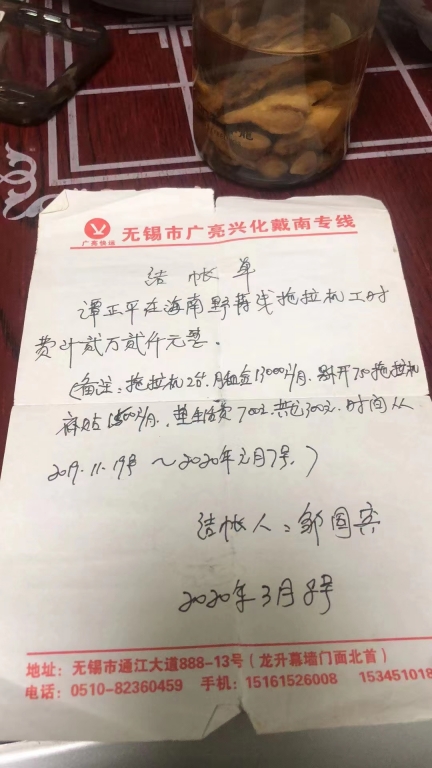 广亮快运
无锡市广亮兴化戴南专线
结帐单
谭正平在海南野蒋浅拖拉机工时
费计贰万贰仟元整.
(备注: 拖拉机2台. 月租金13000/月. 开750拖拉机
补贴1500/月. 生活费700元. 300元. 时间从
2019.11.19号 ~ 2020年元月7号.)
结帐人: 邹国宾
2020年3月8号
地址: 无锡市通江大道888-13号 (龙升幕墙门面北首)
电话: 0510-82360459 手机: 15161526008 153451018